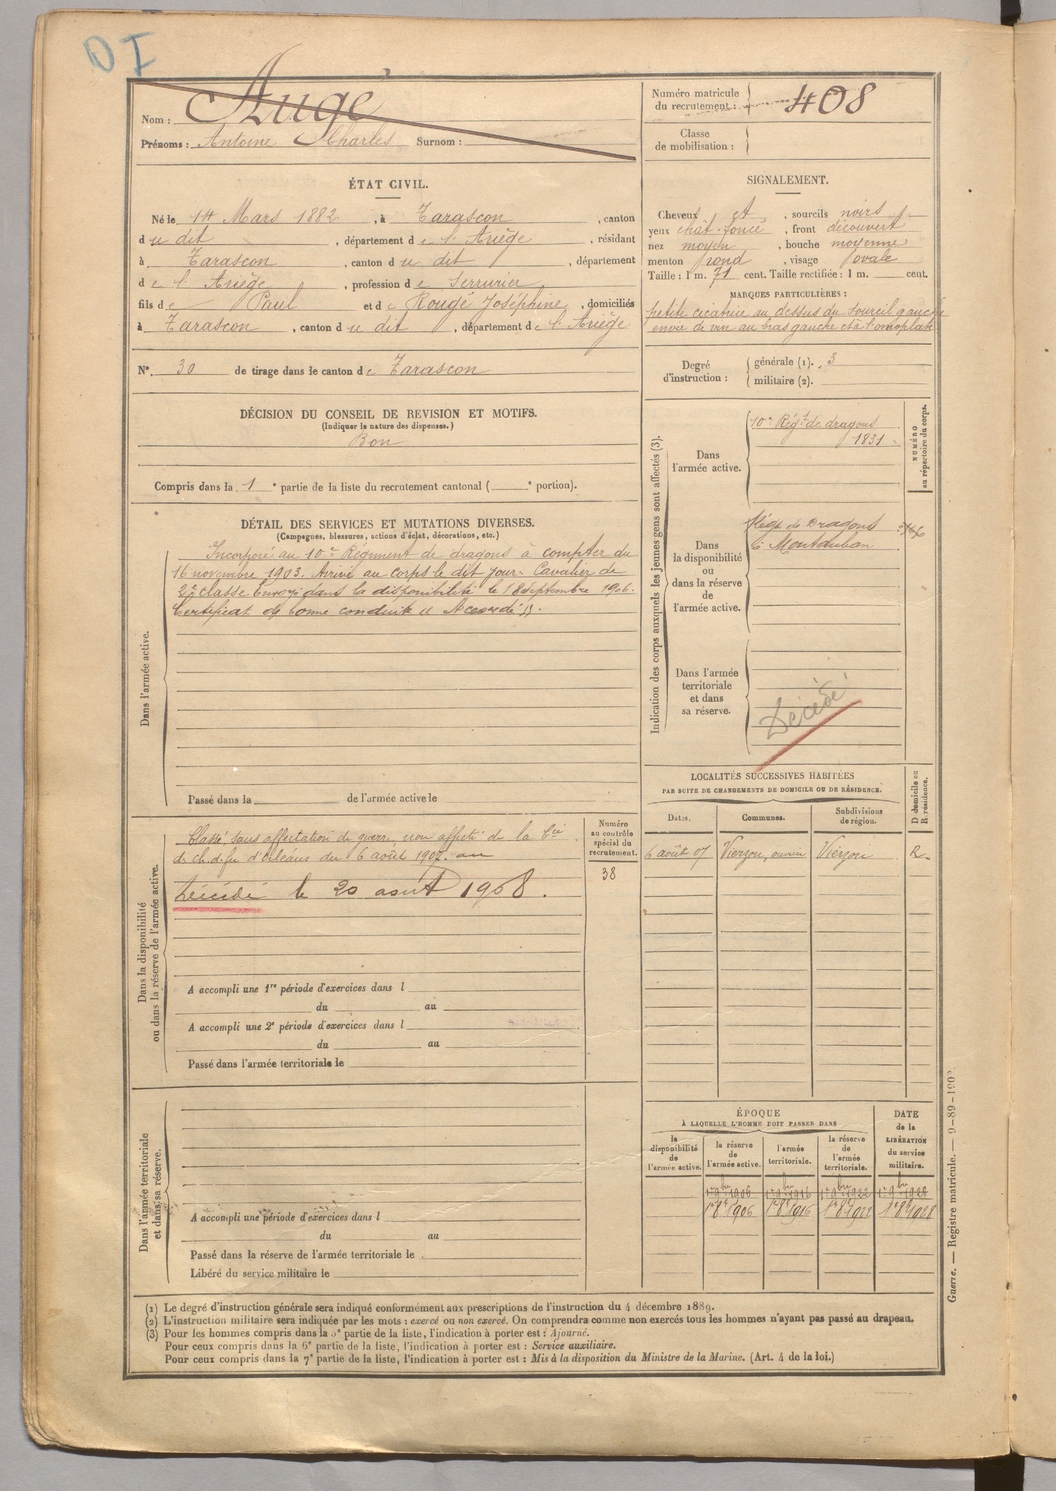 D I
Nom : Augé
Prénoms : Antoine Charles Surnom :
Numéro matricule
du recrutement : 408
Classe
de mobilisation :
ÉTAT CIVIL.
Né le 14 Mars 1882, à Tarascon, canton
du dit, département de l'Ariège, résidant
à Tarascon, canton du dit, département
de l'Ariège, profession de Serrurier,
fils de Paul et de Rougé Joséphine, domiciliés
à Tarascon, canton du dit, département de l'Ariège
N° 30 de tirage dans le canton de Tarascon
SIGNALEMENT.
Cheveux et, sourcils noirs
yeux chât. foncé, front découvert
nez moyen, bouche moyenne
menton rond, visage ovale
Taille : 1 m. 71 cent. Taille rectifiée : 1 m. cent.
MARQUES PARTICULIÈRES :
petite cicatrice au dessus du sourcil gauche
envie de vin au bras gauche et à l'omoplate
Degré
d'instruction :
générale (1). 3
militaire (2).
DÉCISION DU CONSEIL DE REVISION ET MOTIFS.
(Indiquer la nature des dispenses.)
Bon
Compris dans la 1e partie de la liste du recrutement cantonal ( e portion).
DÉTAIL DES SERVICES ET MUTATIONS DIVERSES.
(Campagnes, blessures, actions d'éclat, décorations, etc.)
Dans l'armée active.
Incorporé au 10e Régiment de dragons à compter du
16 novembre 1903. Arrivé au corps le dit jour. Cavalier de
2e classe. Envoyé dans la disponibilité le 18 septembre 1906.
Certificat de bonne conduite "Accordé".
Passé dans la de l'armée active le
Indication des corps auxquels les jeunes gens sont affectés (3).
NUMÉRO
au répertoire du corps.
Dans
l'armée active.
10e Régt de dragons
1831
Dans
la disponibilité
ou
dans la réserve
de
l'armée active.
Régt de Dragons
à Montauban
Dans l'armée
territoriale
et dans
sa réserve.
Décédé
LOCALITÉS SUCCESSIVES HABITÉES
PAR SUITE DE CHANGEMENTS DE DOMICILE OU DE RÉSIDENCE.
D domicile ou
R résidence.
Dates. Communes. Subdivisions
de région.
6 août 07 Vierzon, Vierzon R.
Dans la disponibilité
ou dans la réserve de l'armée active.
Numéro
au contrôle
spécial du
recrutement.
38
Classé sans affectation de guerre, non affecté de la Cie
de ch. de fer d'Orléans du 6 août 1907. au
Décédé le 20 août 1908.
A accompli une 1re période d'exercices dans l
du au
A accompli une 2e période d'exercices dans l
du au
Passé dans l'armée territoriale le
Dans l'armée territoriale
et dans sa réserve.
A accompli une période d'exercices dans l
du au
Passé dans la réserve de l'armée territoriale le
Libéré du service militaire le
ÉPOQUE
À LAQUELLE L'HOMME DOIT PASSER DANS
la
disponibilité
de
l'armée active.
la réserve
de
l'armée active.
l'armée
territoriale.
la réserve
de
l'armée
territoriale.
DATE
de la
LIBÉRATION
du service
militaire.
1er 9bre 1906 1er 9bre 1916 1er 9bre 1922 1er 9bre 1928
1er 8bre 1906 1er 8bre 1916 1er 8bre 1922 1er 8bre 1928
(1) Le degré d'instruction générale sera indiqué conformément aux prescriptions de l'instruction du 4 décembre 1889.
(2) L'instruction militaire sera indiquée par les mots : exercé ou non exercé. On comprendra comme non exercés tous les hommes n'ayant pas passé au drapeau.
(3) Pour les hommes compris dans la 5e partie de la liste, l'indication à porter est : Ajourné.
Pour ceux compris dans la 6e partie de la liste, l'indication à porter est : Service auxiliaire.
Pour ceux compris dans la 7e partie de la liste, l'indication à porter est : Mis à la disposition du Ministre de la Marine. (Art. 4 de la loi.)
Guerre. — Registre matricule. — 9-89-1902.